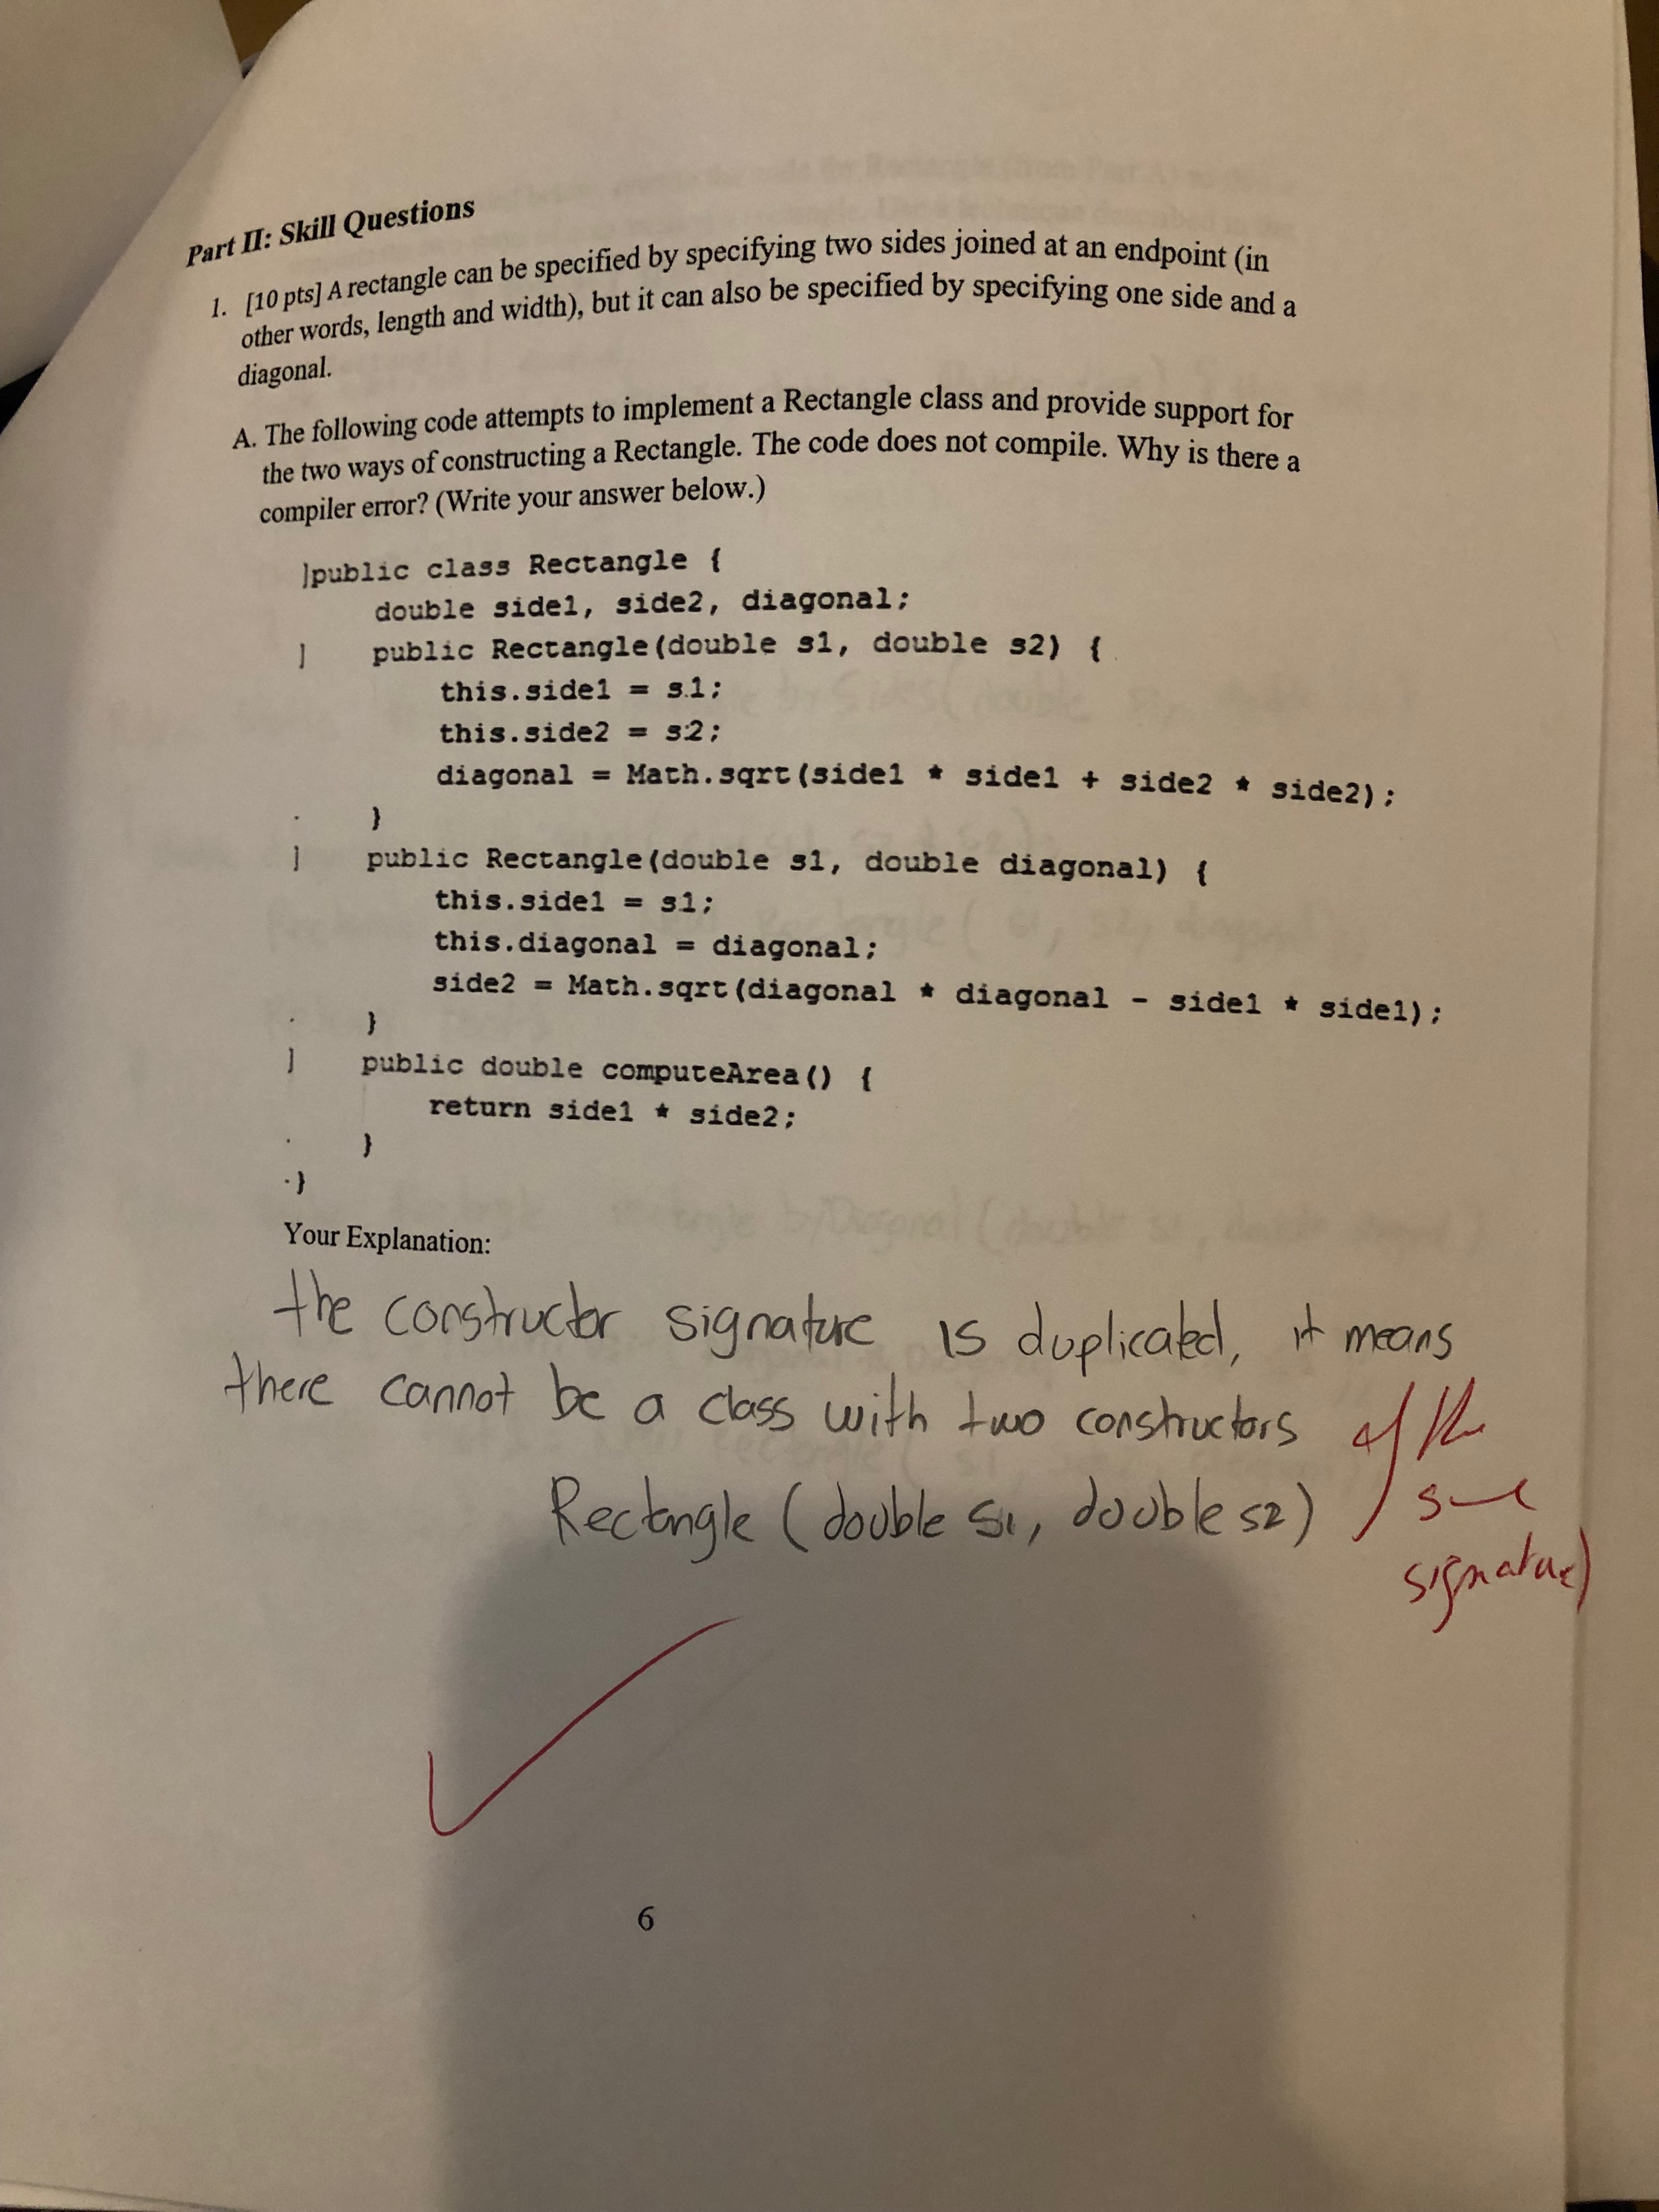 Part II: Skill Questions
1. [10 pts] A rectangle can be specified by specifying two sides joined at an endpoint (in
other words, length and width), but it can also be specified by specifying one side and a
diagonal.
A. The following code attempts to implement a Rectangle class and provide support for
the two ways of constructing a Rectangle. The code does not compile. Why is there a
compiler error? (Write your answer below.)
public class Rectangle {
double side1, side2, diagonal;
public Rectangle(double s1, double s2) {
this.side1 = s1;
this.side2 = s2;
diagonal = Math.sqrt(side1 * side1 + side2 * side2);
}
public Rectangle(double s1, double diagonal) {
this.side1 = s1;
this.diagonal = diagonal;
side2 = Math.sqrt(diagonal * diagonal - side1 * side1);
}
public double computeArea() {
return side1 * side2;
}
}
Your Explanation:
the constructor signature is duplicated, it means
there cannot be a class with two constructors of the
Rectangle (double s1, double s2) same
signature)
6